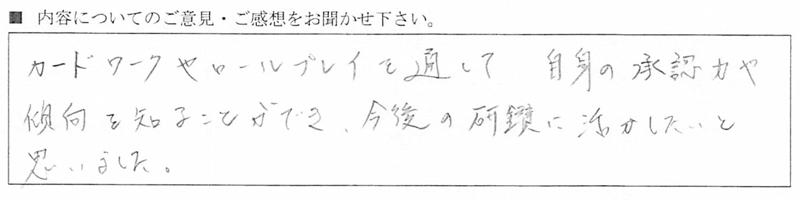 ■ 内容についてのご意見・ご感想をお聞かせ下さい。
カードワークやロールプレイを通して 自身の承認力や
傾向を知ることができ、今後の研鑽に活かしたいと
思いました。